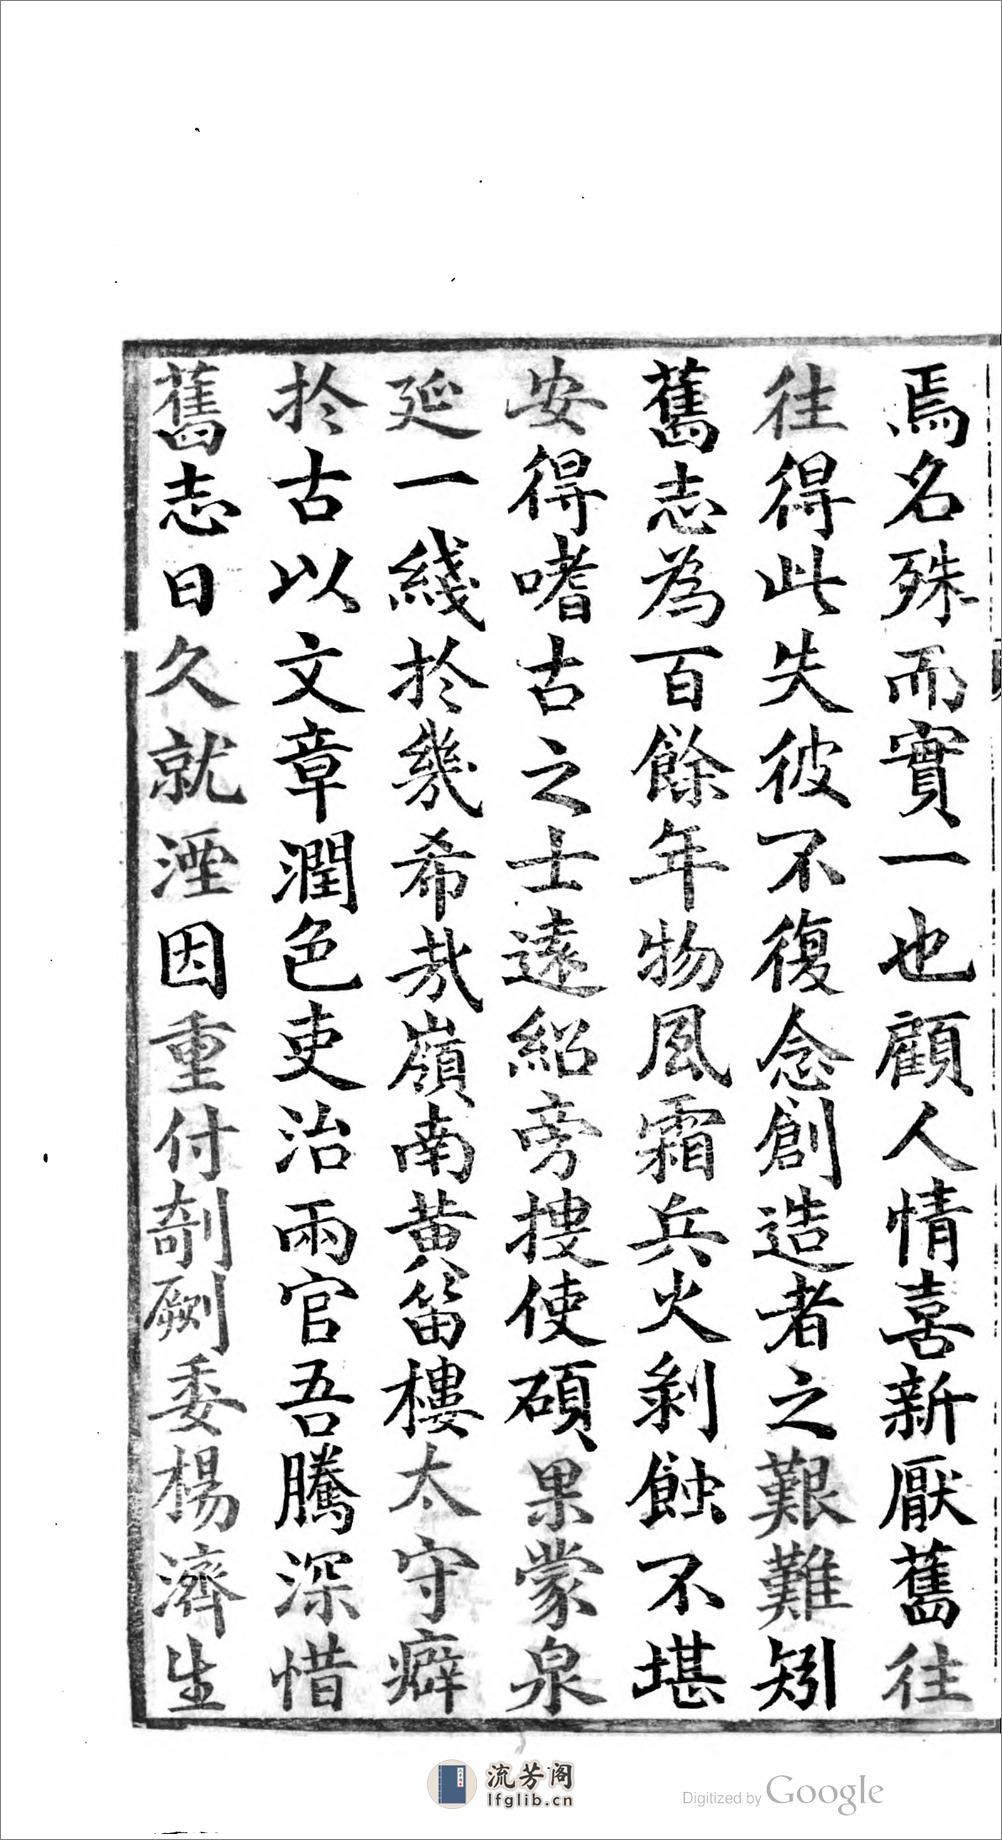 焉名殊而實一也顧人情喜新厭舊往
往得此失彼不復念創造者之艱難矧
舊志為百餘年物風霜兵火剝蝕不堪
安得嗜古之士遠紹旁搜使碩果蒙泉
延一綫於幾希哉嶺南黃笛樓太守癖
於古以文章潤色吏治兩官吾騰深惜
舊志日久就湮因重付剞劂委楊濟生
流芳阁
lfglib.cn
Digitized by Google